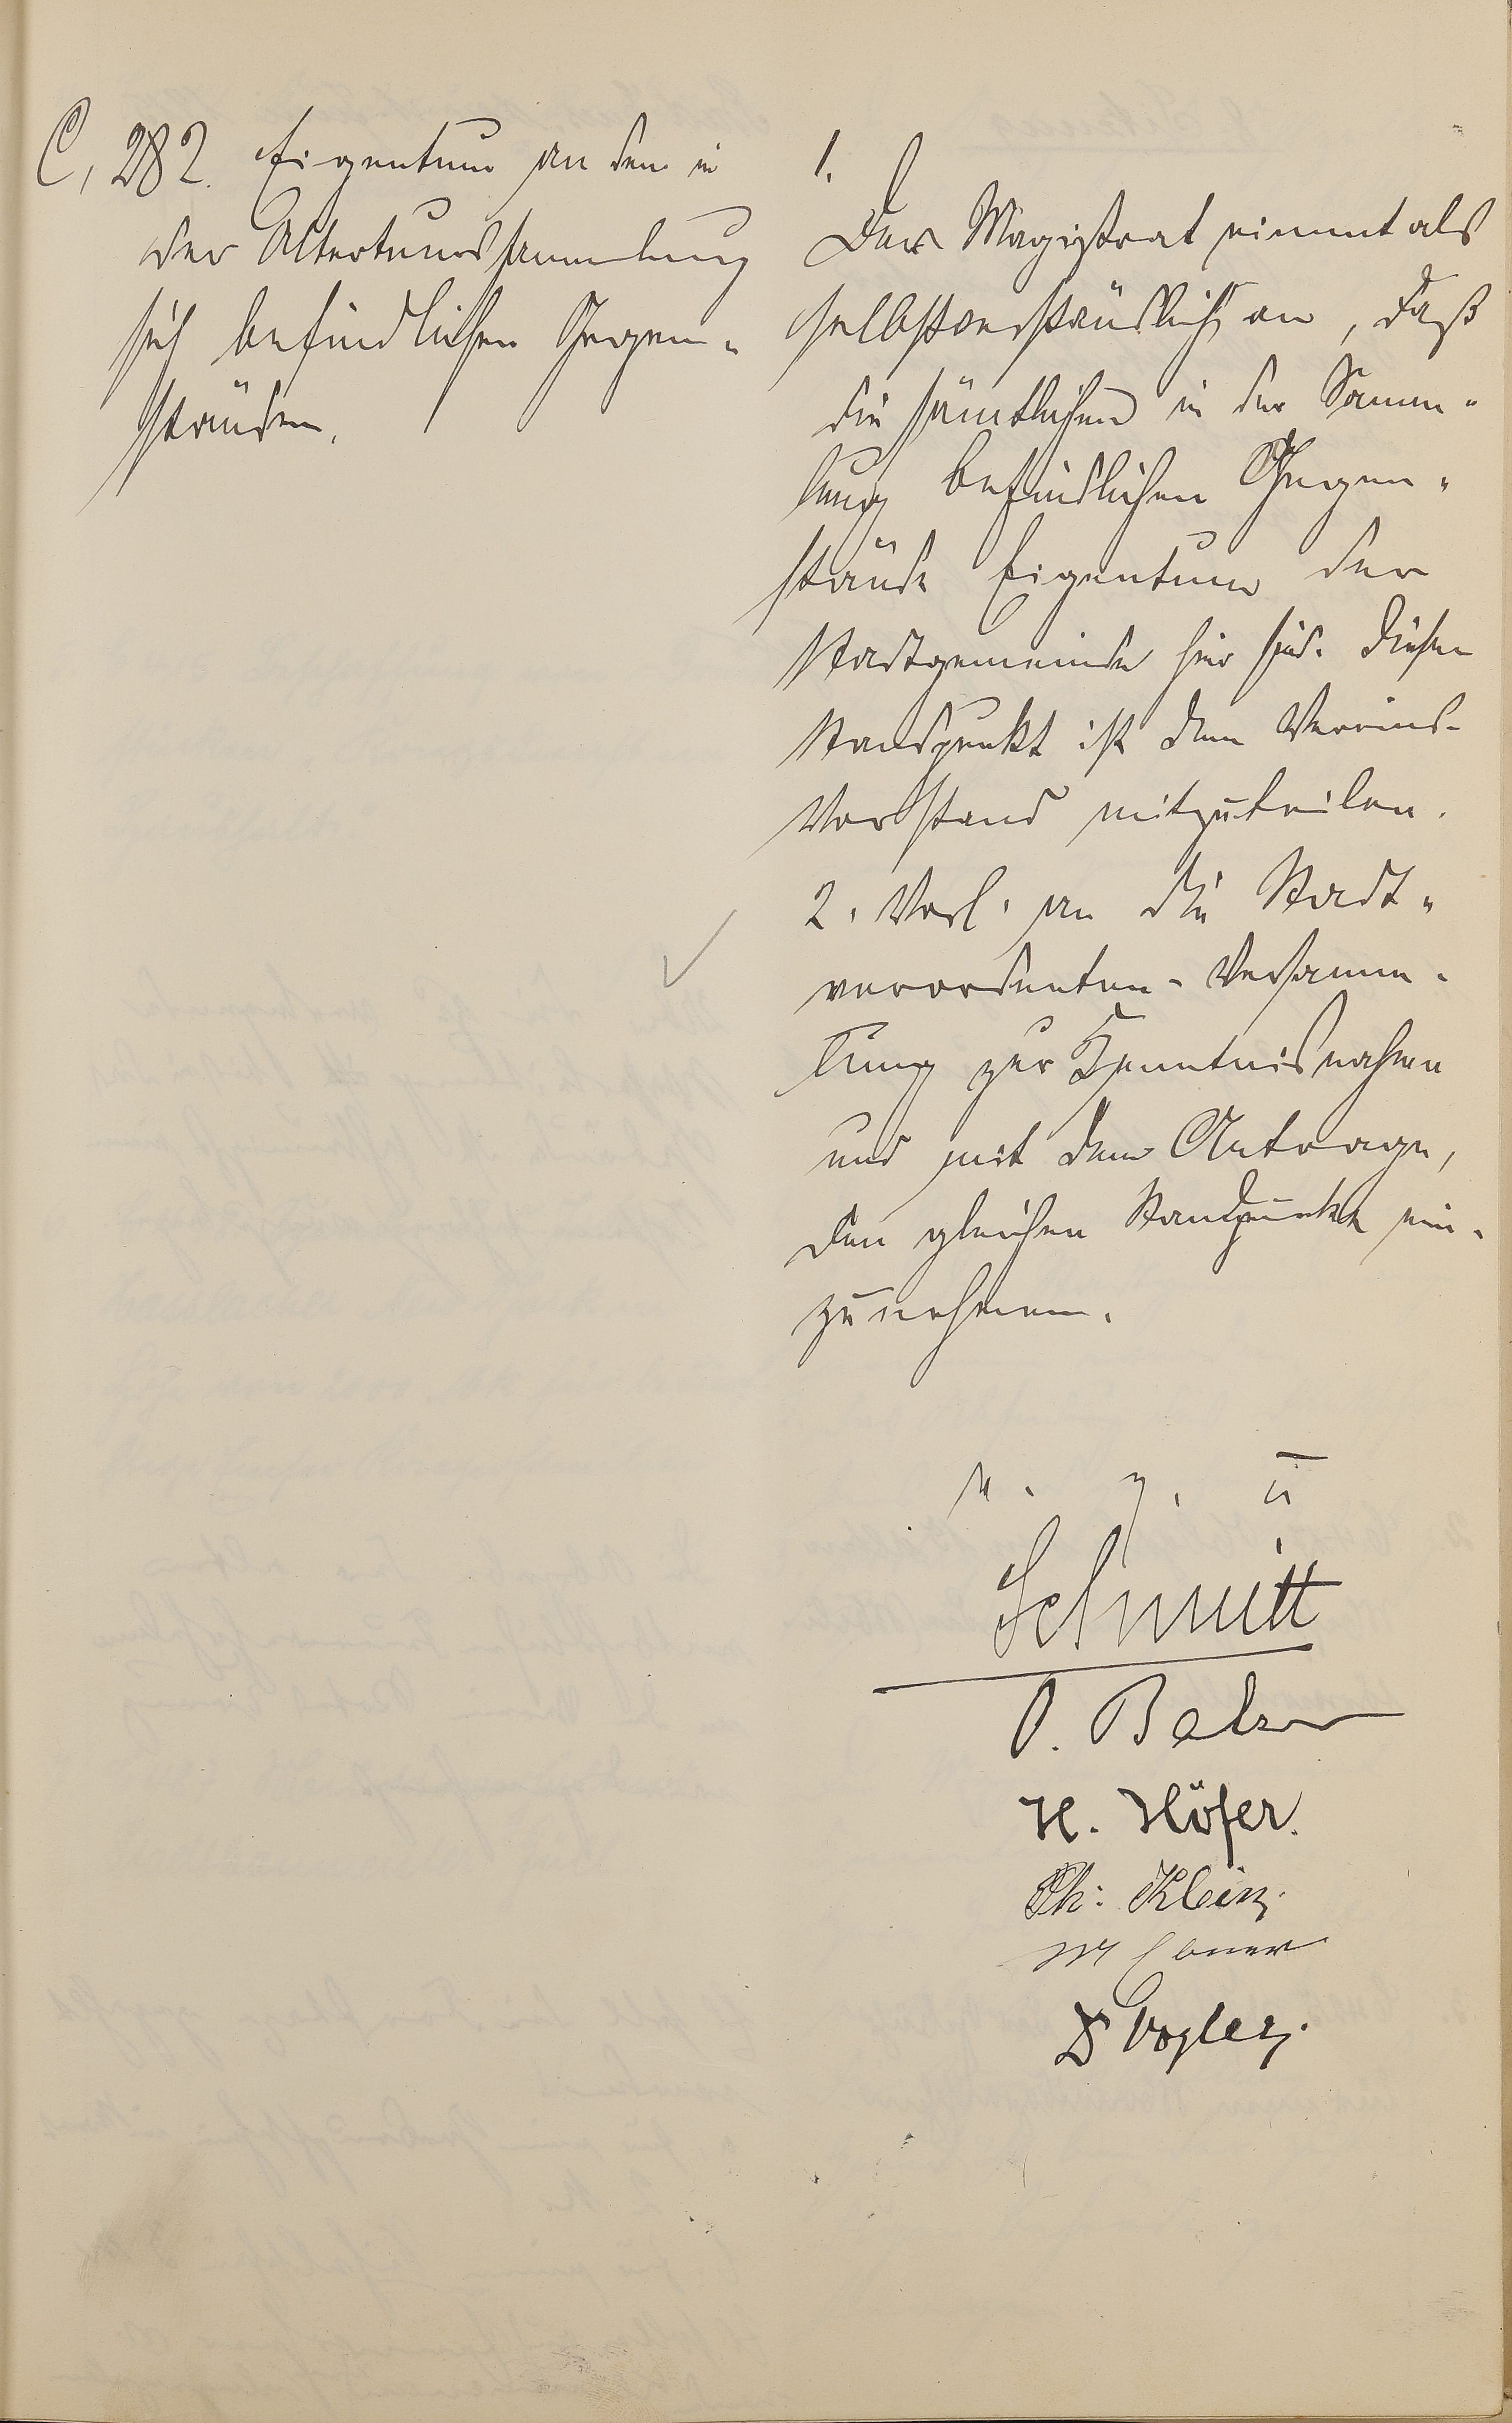 C, 282. Eigentum an den in
der Altertumssammlung
sich befindlichen Gegen-
ständen.
1.
Der Magistrat nimmt als
selbstverständlich an, daß
die sämtlichen in der Samm-
lung befindlichen Gegen-
stände Eigentum der
Stadtgemeinde hier sind. Dieser
Standpunkt ist dem Vereins-
Vorstand mitzuteilen.
2. Vorl. an die Stadt-
verordneten-Versamm-
lung zur Kenntnisnahme
und mit dem Antrage,
den gleichen Standpunkt ein-
zunehmen.
v. g. u
Schmitt
O. Balzer
H. Höfer.
Ph: Klein.
D Vogler.